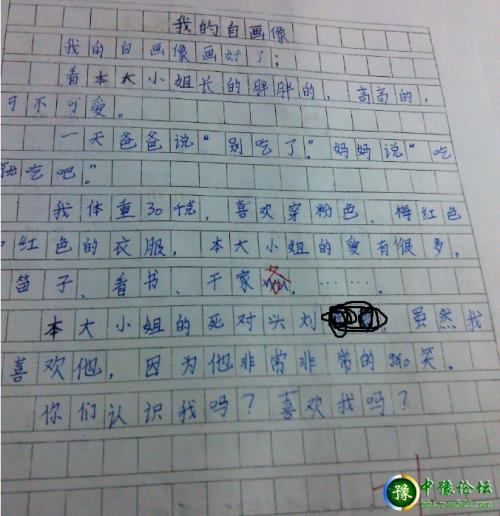 我的自画像
我的自画像画好了；
看本大小姐长的胖胖的，高高的，
可不可爱。
一天爸爸说“别吃了。”妈妈说“吃
吃吧。”
我体重30千克，喜欢穿粉色、梅红色
红色的衣服，本大小姐的爱有很多，
笛子、看书、干家……。
本大小姐的死对头刘 虽然我
喜欢他，因为他非常非常的 笑。
你们认识我吗？喜欢我吗？
豫 中豫论坛